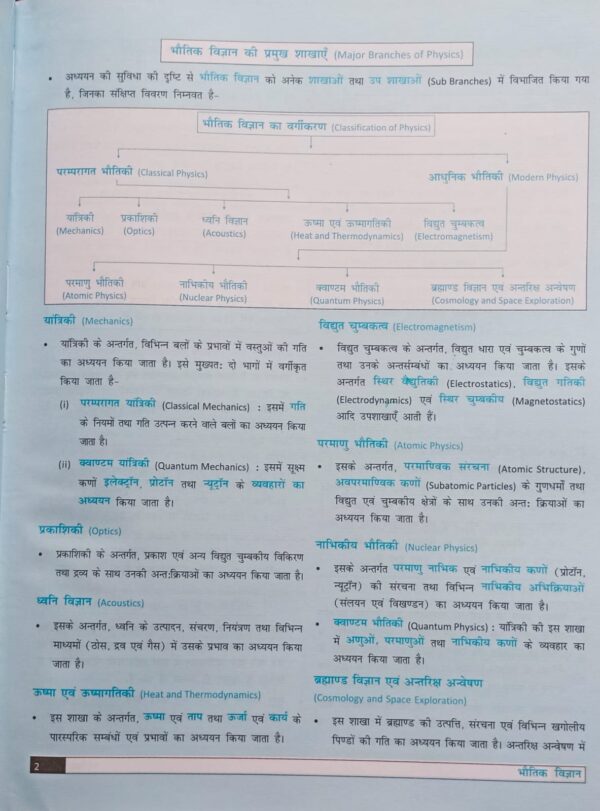 भौतिक विज्ञान की प्रमुख शाखाएँ (Major Branches of Physics)
• अध्ययन की सुविधा की दृष्टि से भौतिक विज्ञान को अनेक शाखाओं तथा उप शाखाओं (Sub Branches) में विभाजित किया गया
है, जिनका संक्षिप्त विवरण निम्नवत है–
भौतिक विज्ञान का वर्गीकरण (Classification of Physics)
परम्परागत भौतिकी (Classical Physics)
आधुनिक भौतिकी (Modern Physics)
यांत्रिकी प्रकाशिकी ध्वनि विज्ञान ऊष्मा एवं ऊष्मागतिकी विद्युत चुम्बकत्व
(Mechanics) (Optics) (Acoustics) (Heat and Thermodynamics) (Electromagnetism)
परमाणु भौतिकी नाभिकीय भौतिकी क्वाण्टम भौतिकी ब्रह्माण्ड विज्ञान एवं अन्तरिक्ष अन्वेषण
(Atomic Physics) (Nuclear Physics) (Quantum Physics) (Cosmology and Space Exploration)
यांत्रिकी (Mechanics)
• यांत्रिकी के अन्तर्गत, विभिन्न बलों के प्रभावों में वस्तुओं की गति
का अध्ययन किया जाता है। इसे मुख्यतः दो भागों में वर्गीकृत
किया जाता है–
(i) परम्परागत यांत्रिकी (Classical Mechanics) : इसमें गति
के नियमों तथा गति उत्पन्न करने वाले बलों का अध्ययन किया
जाता है।
(ii) क्वाण्टम यांत्रिकी (Quantum Mechanics) : इसमें सूक्ष्म
कणों इलेक्ट्रॉन, प्रोटॉन तथा न्यूट्रॉन के व्यवहारों का
अध्ययन किया जाता है।
प्रकाशिकी (Optics)
• प्रकाशिकी के अन्तर्गत, प्रकाश एवं अन्य विद्युत चुम्बकीय विकिरण
तथा द्रव्य के साथ उनकी अन्तःक्रियाओं का अध्ययन किया जाता है।
ध्वनि विज्ञान (Acoustics)
• इसके अन्तर्गत, ध्वनि के उत्पादन, संचरण, नियंत्रण तथा विभिन्न
माध्यमों (ठोस, द्रव एवं गैस) में उसके प्रभाव का अध्ययन किया
जाता है।
ऊष्मा एवं ऊष्मागतिकी (Heat and Thermodynamics)
• इस शाखा के अन्तर्गत, ऊष्मा एवं ताप तथा ऊर्जा एवं कार्य के
पारस्परिक सम्बंधों एवं प्रभावों का अध्ययन किया जाता है।
विद्युत चुम्बकत्व (Electromagnetism)
• विद्युत चुम्बकत्व के अन्तर्गत, विद्युत धारा एवं चुम्बकत्व के गुणों
तथा उनके अन्तर्सम्बंधों का अध्ययन किया जाता है। इसके
अन्तर्गत स्थिर वैद्युतिकी (Electrostatics), विद्युत गतिकी
(Electrodynamics) एवं स्थिर चुम्बकीय (Magnetostatics)
आदि उपशाखाएँ आती हैं।
परमाणु भौतिकी (Atomic Physics)
• इसके अन्तर्गत, परमाण्विक संरचना (Atomic Structure),
अवपरमाण्विक कणों (Subatomic Particles) के गुणधर्मों तथा
विद्युत एवं चुम्बकीय क्षेत्रों के साथ उनकी अन्तः क्रियाओं का
अध्ययन किया जाता है।
नाभिकीय भौतिकी (Nuclear Physics)
• इसके अन्तर्गत परमाणु नाभिक एवं नाभिकीय कणों (प्रोटॉन,
न्यूट्रॉन) की संरचना तथा विभिन्न नाभिकीय अभिक्रियाओं
(संलयन एवं विखण्डन) का अध्ययन किया जाता है।
• क्वाण्टम भौतिकी (Quantum Physics) : यांत्रिकी की इस शाखा
में अणुओं, परमाणुओं तथा नाभिकीय कणों के व्यवहार का
अध्ययन किया जाता है।
ब्रह्माण्ड विज्ञान एवं अन्तरिक्ष अन्वेषण
(Cosmology and Space Exploration)
• इस शाखा में ब्रह्माण्ड की उत्पत्ति, संरचना एवं विभिन्न खगोलीय
पिण्डों की गति का अध्ययन किया जाता है। अन्तरिक्ष अन्वेषण में
2
भौतिक विज्ञान